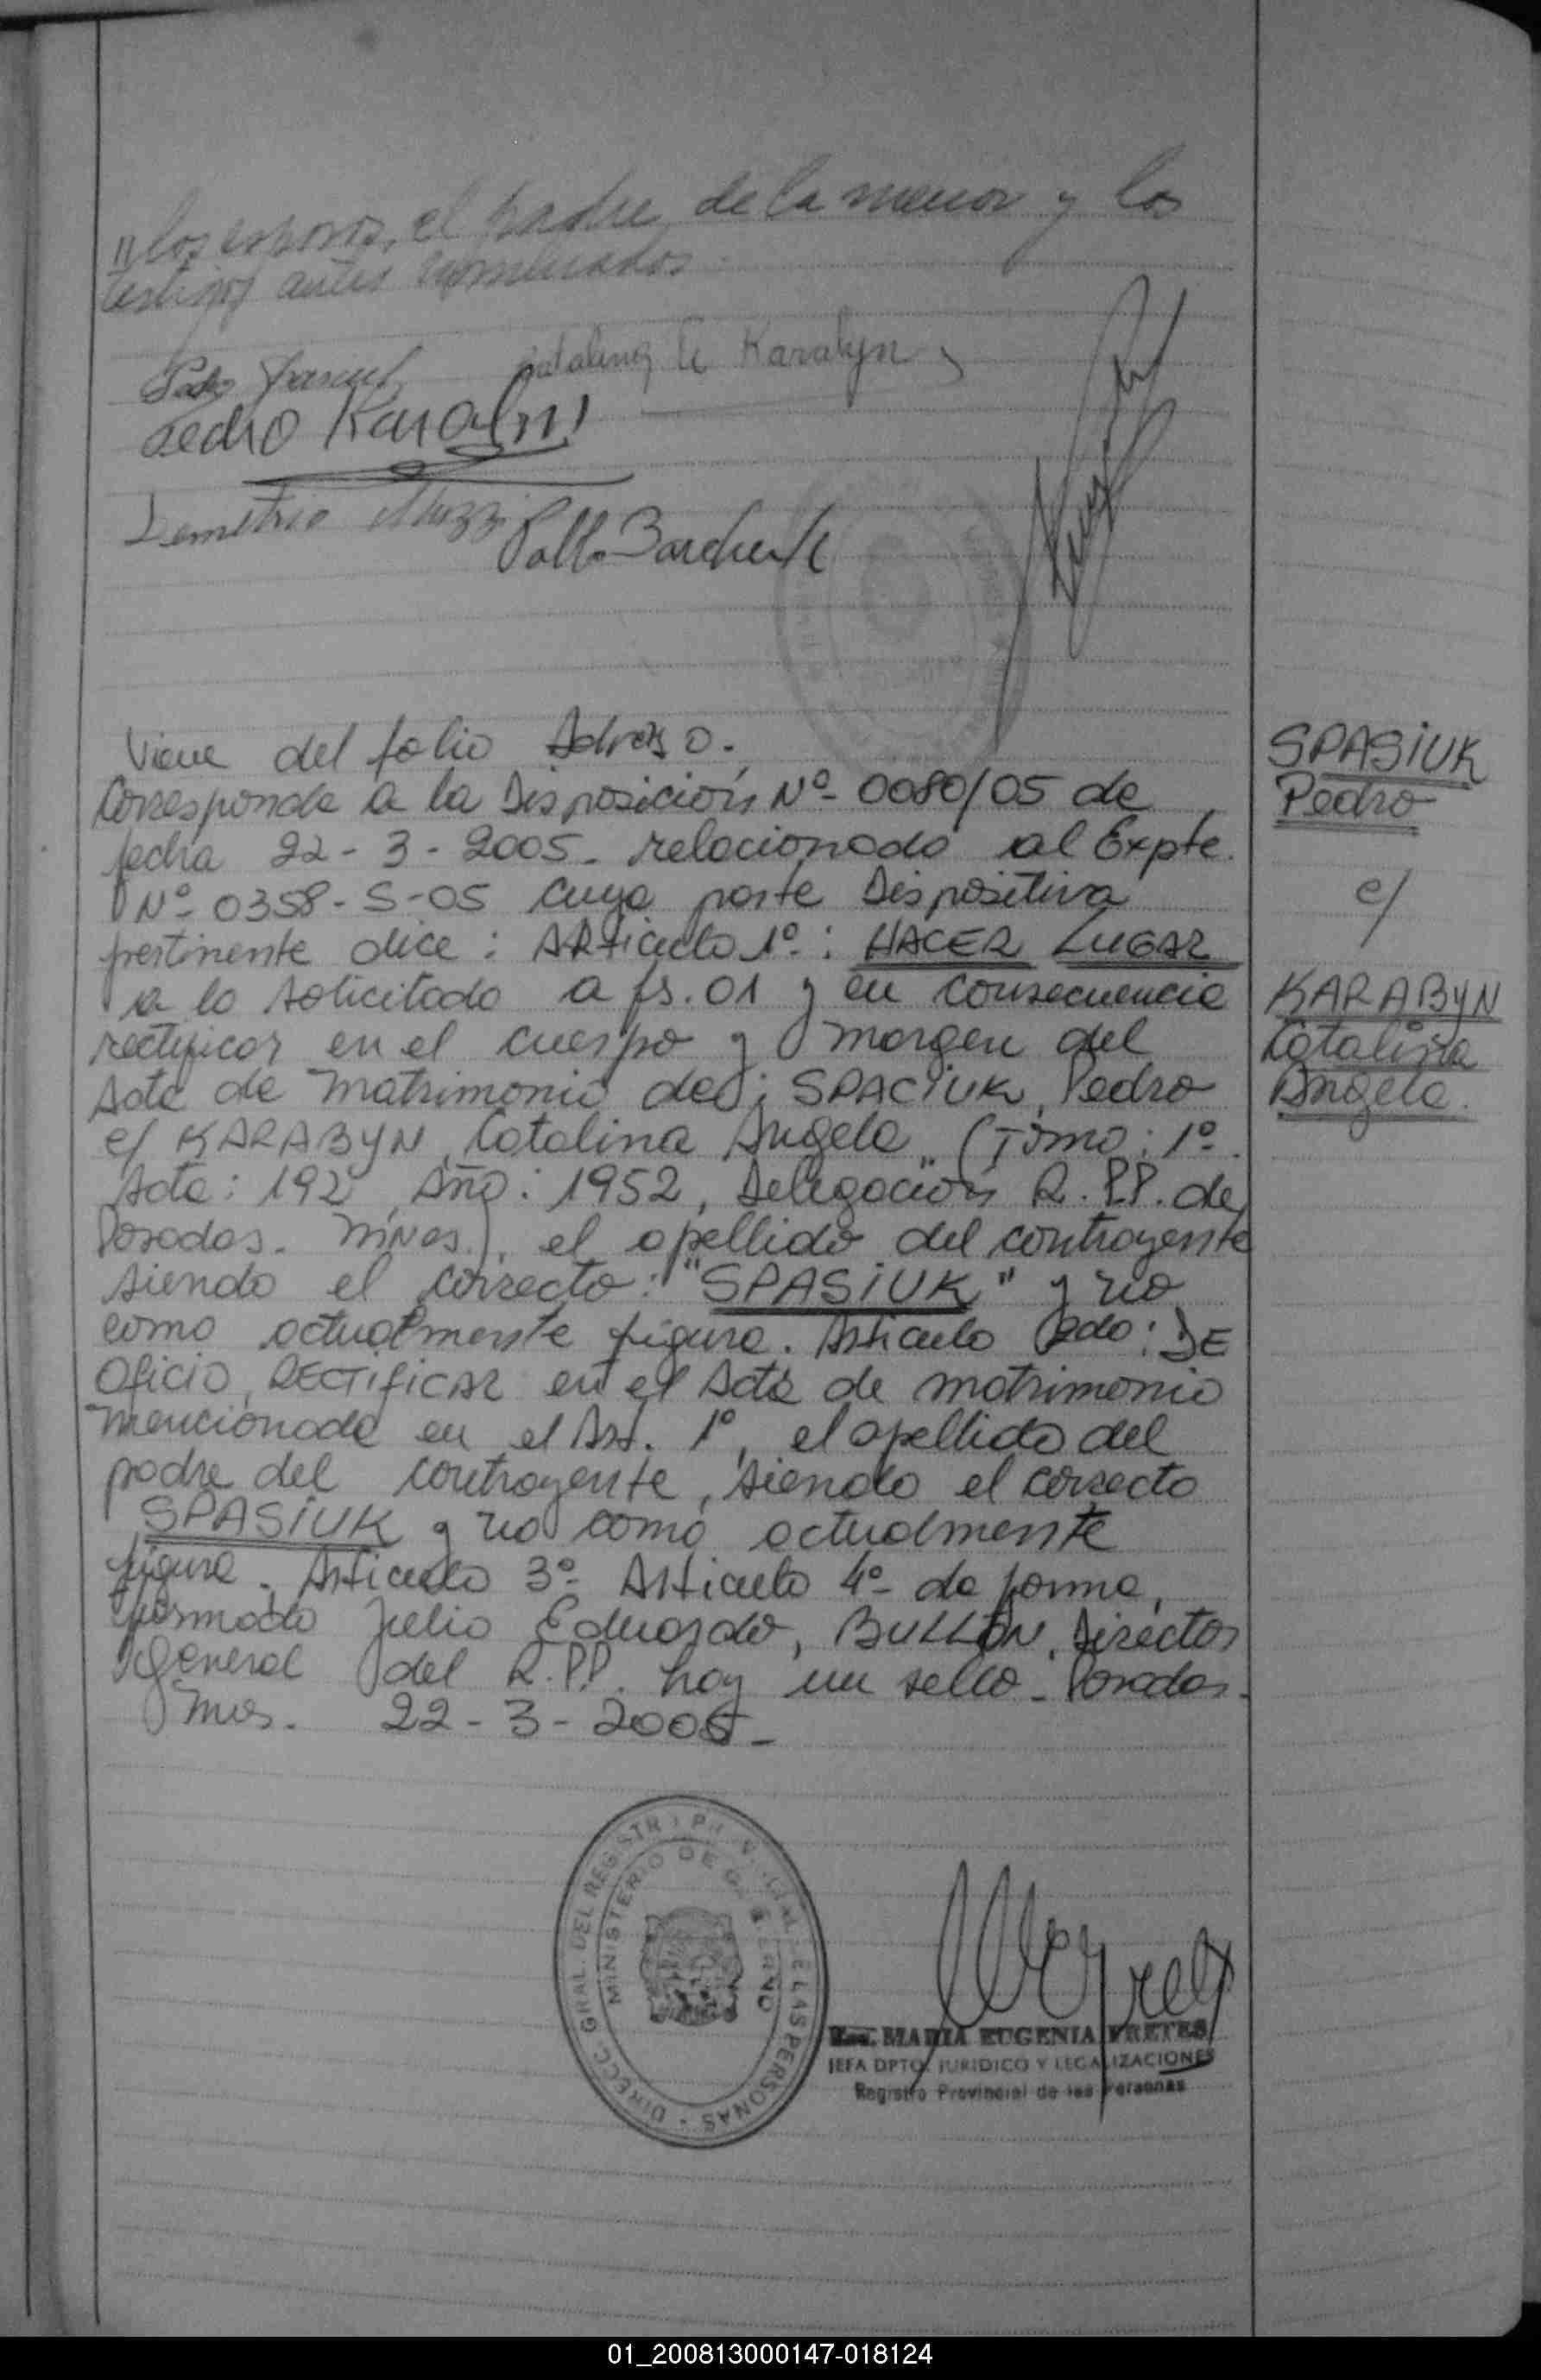 // los esposos, el padre de la menor y los
testigos antes nombrados.
Catalina A Karabyn
Pedro Karabyn
Demetrio
Pablo
Viene del folio Adverso.
SPASIUK
Pedro
c/
KARABYN
Catalina
Angela.
Corresponde a la Disposición Nº- 0080/05 de
fecha 22-3-2005- relacionado al Expte.
Nº- 0358-S-05 cuya parte Dispositiva
pertinente dice: ARticulo 1º-: HACER LUGAR
a lo solicitado a fs. 01 y en consecuencia
rectificar en el cuerpo y margen del
Acta de matrimonio de: SPACIUK, Pedro
c/ KARABYN, Catalina Angela" (Tomo: 1º-
Acta: 192, Año: 1952, Delegación R.P.P. de
Posadas. mnes.), el apellido del contrayente
siendo el correcto: "SPASIUK" y no
como actualmente figura. Articulo 2do: DE
Oficio, RECTIFICAR en el Acta de matrimonio
mencionada en el Art. 1º, el apellido del
padre del contrayente, siendo el correcto
SPASIUK y no como actualmente
figura. Articulo 3º- Articulo 4º- de forma,
firmado Julio Eduardo, BULLON, Director
General del R.P.P. hay un sello- Posadas-
Mns. 22-3-2005-
DIRECC. GRAL. DEL REGISTRO PROVINCIAL DE LAS PERSONAS
MINISTERIO DE GOBIERNO
MARIA EUGENIA FRETES
JEFA DPTO. JURIDICO Y LEGALIZACIONES
Registro Provincial de las Personas
01_200813000147-018124